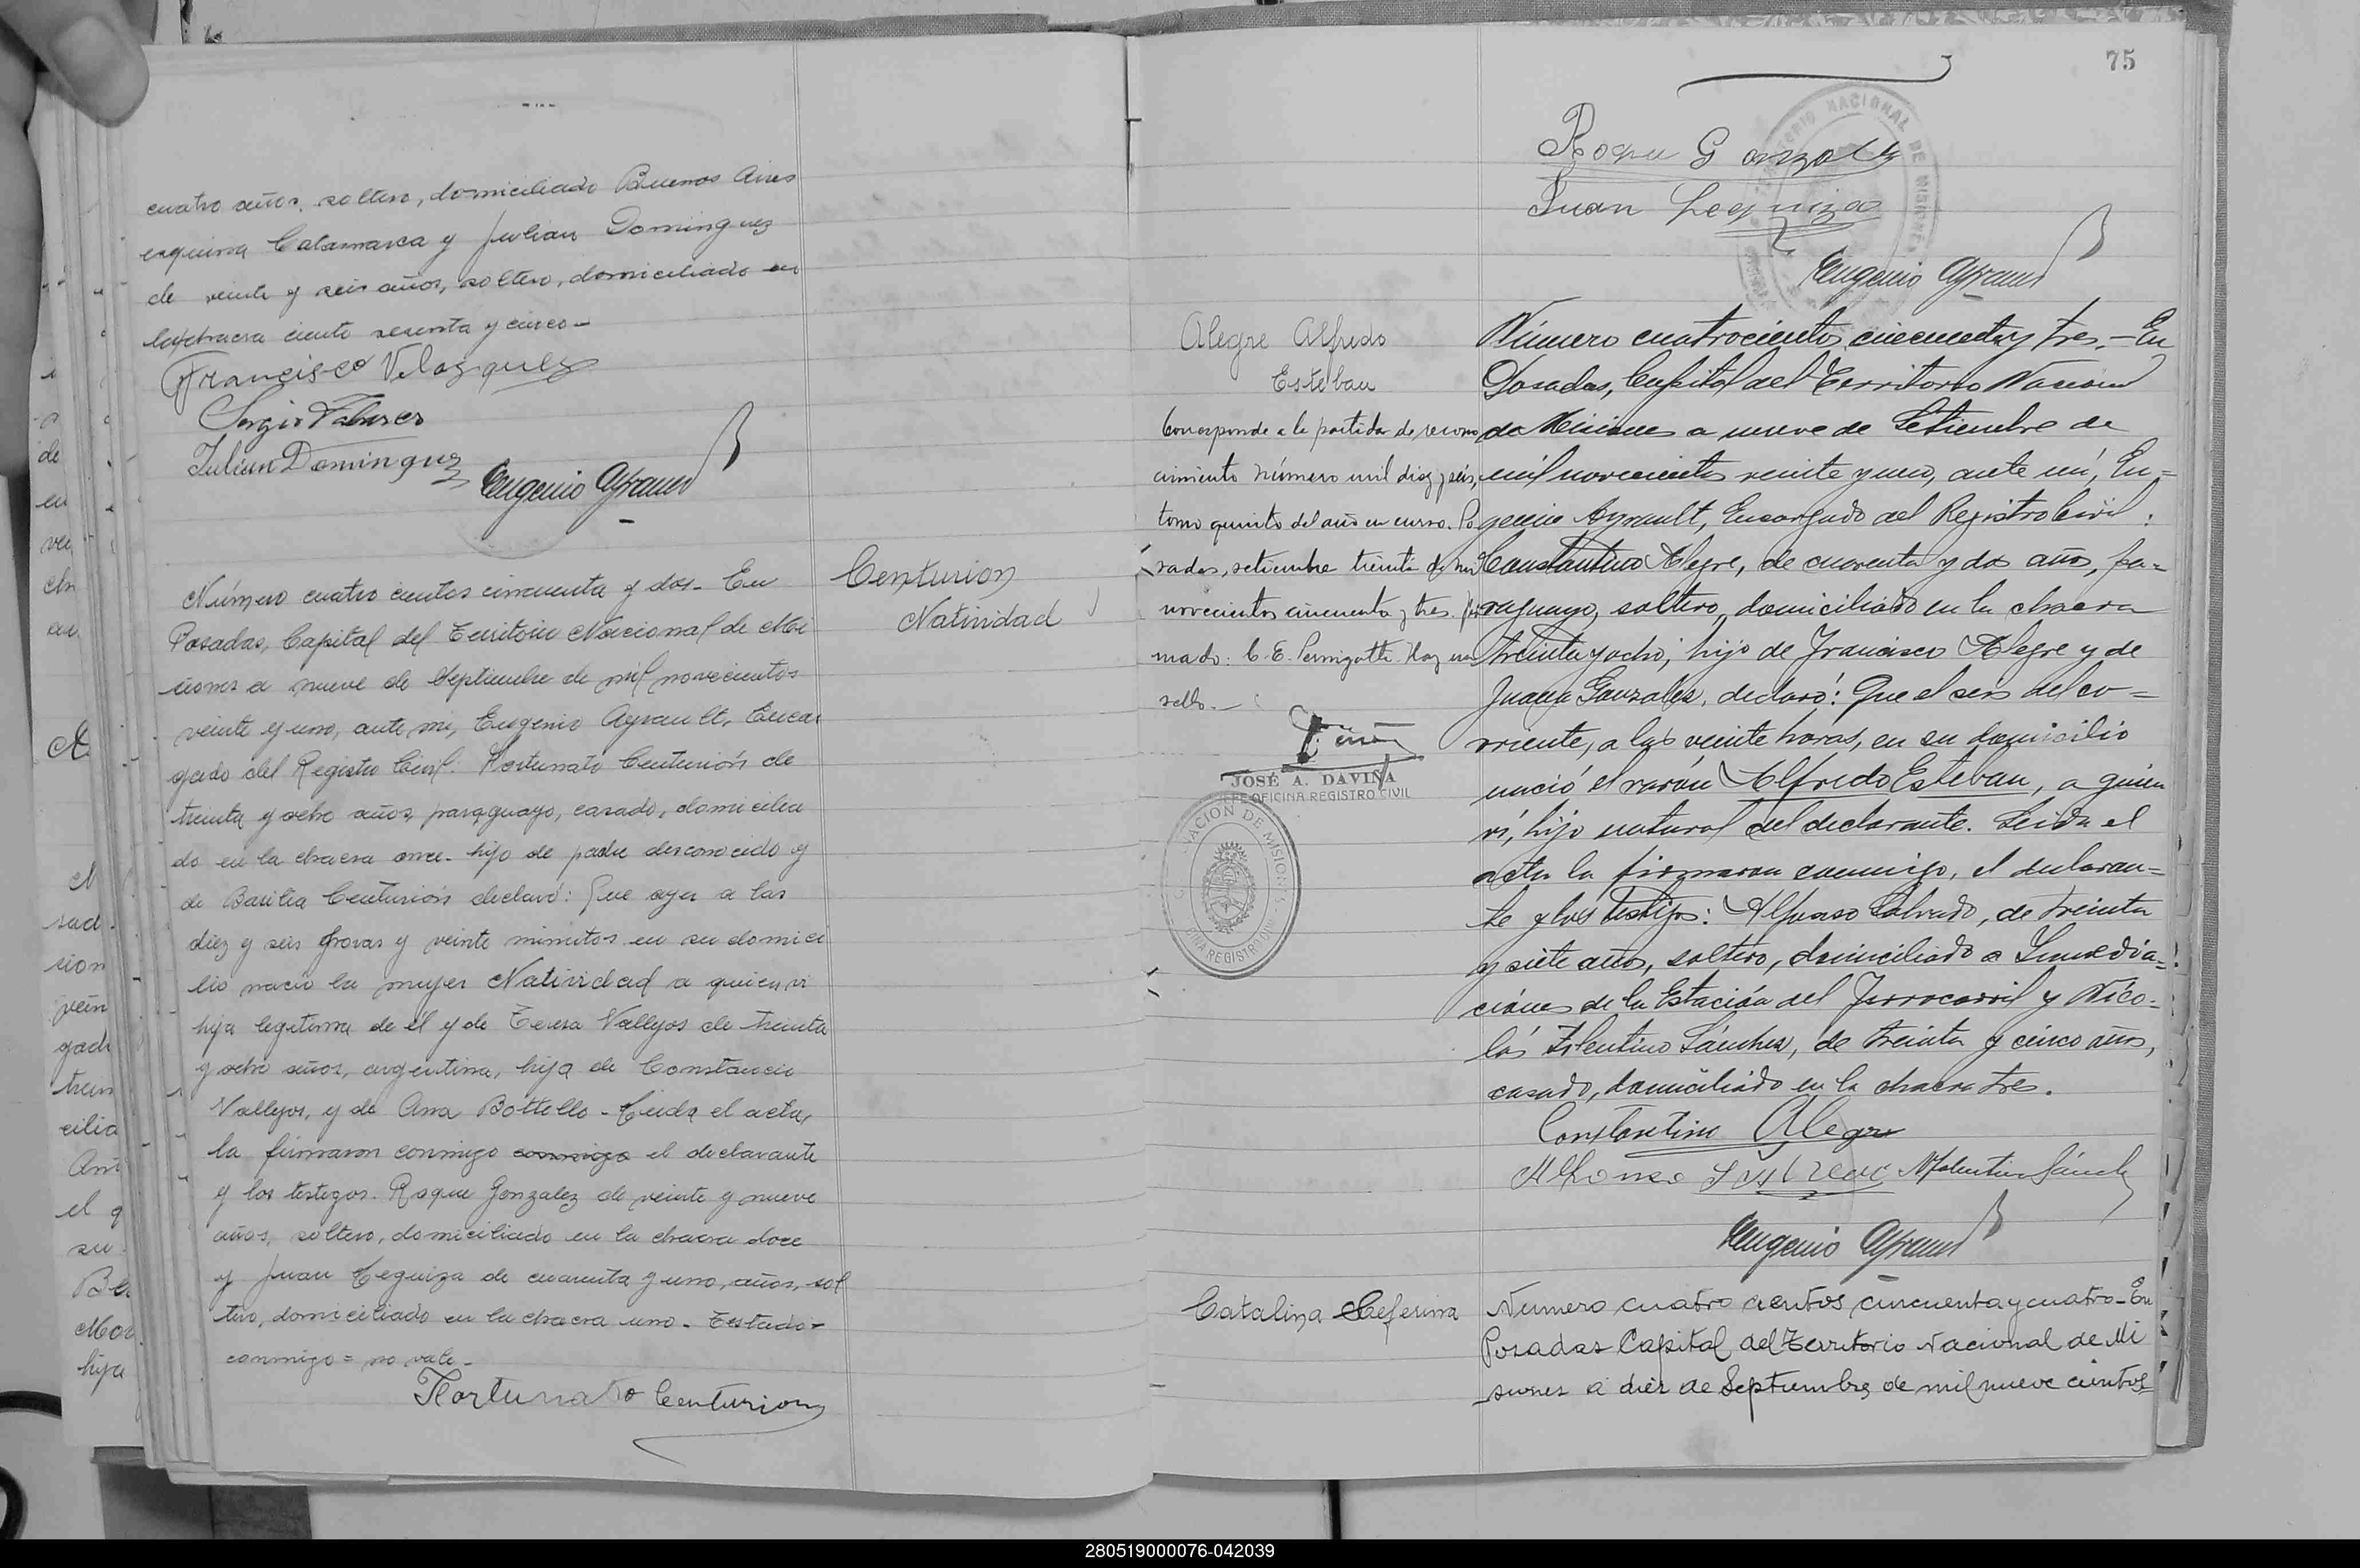 cuatro años, soltero, domiciliado Buenos Aires
esquina Catamarca y Julian Dominguez
de veinte y seis años, soltero, domiciliado en
la chacra ciento sesenta y cinco-
Francisco Velazquez
Sergio
Julian Dominguez
Eugenio Ayrault
Número cuatro cientos cincuenta y dos- En
Posadas, Capital del Territorio Nacional de Mi
siones a nueve de Septiembre de mil novecientos
veinte y uno, ante mi, Eugenio Ayrault, Encar
gado del Registro Civil: Fortunato Centurión de
treinta y ocho años, paraguayo, casado, domicilia
do en la chacra once- hijo de padre desconocido y
de Basilia Centurión declaró: Que ayer a las
diez y seis horas y veinte minutos en su domici
lio nació la mujer Natividad a quien vi
hija legitima de él y de Teresa Vallejos de treinta
y ocho años, argentina, hija de Constancio
Vallejos, y de Ana Bottello- Leida el acta,
la firmaron conmigo conmigo el declarante
y los testigos. Roque Gonzalez de veinte y nueve
años, soltero, domiciliado en la chacra doce
y Juan Leguiza de cuarenta y uno, años, sol
tero, domiciliado en la chacra uno- Testado-
conmigo = no vale-
Fortunato Centurion
Centurion
Natividad
75
Roque Gonzalez
Juan Leguiza
Eugenio Ayrault
Alegre Alfredo
Esteban
Corresponde a la partida de recono
cimiento número mil diez y seis,
tomo quinto del año en curso. Po
sadas, setiembre treinta de mil
novecientos cincuenta y tres. Fir
mado: C. E. Pernigotti. Hay un
sello.-
JOSÉ A. DAVIÑA
JEFE OFICINA REGISTRO CIVIL
Número cuatrocientos cincuenta y tres.- En
Posadas, Capital del Territorio Nacional
de Misiones a nueve de Setiembre de
mil novecientos veinte y uno, ante mí, Eu=
genio Ayrault, Encargado del Registro Civil:
Constantino Alegre, de cuarenta y dos años, pa=
raguayo, soltero, domiciliado en la chacra
treinta y ocho, hijo de Francisco Alegre y de
Juana Gonzales, declaró: Que el seis del co=
rriente, a las veinte horas, en su domicilio
nació el varón Alfredo Esteban, a quien
ví, hijo natural del declarante. Leida el
acta la firmaron conmigo, el declaran=
te y los testigos: Alfonso Salvado, de treinta
y siete años, soltero, domiciliado a Inmedia=
ciónes de la Estación del Ferrocarril y Nico=
lás Tolentino Sánchez, de treinta y cinco años,
casado, domiciliado en la chacra tres.
Constantino Alegre
Alfonso
N Tolentino Sánchez
Eugenio Ayrault
Catalina Ceferina
Numero cuatro cientos cincuenta y cuatro- En
Posadas Capital del Territorio Nacional de Mi
siones a diez de Septiembre de mil nueve cientos
280519000076-042039